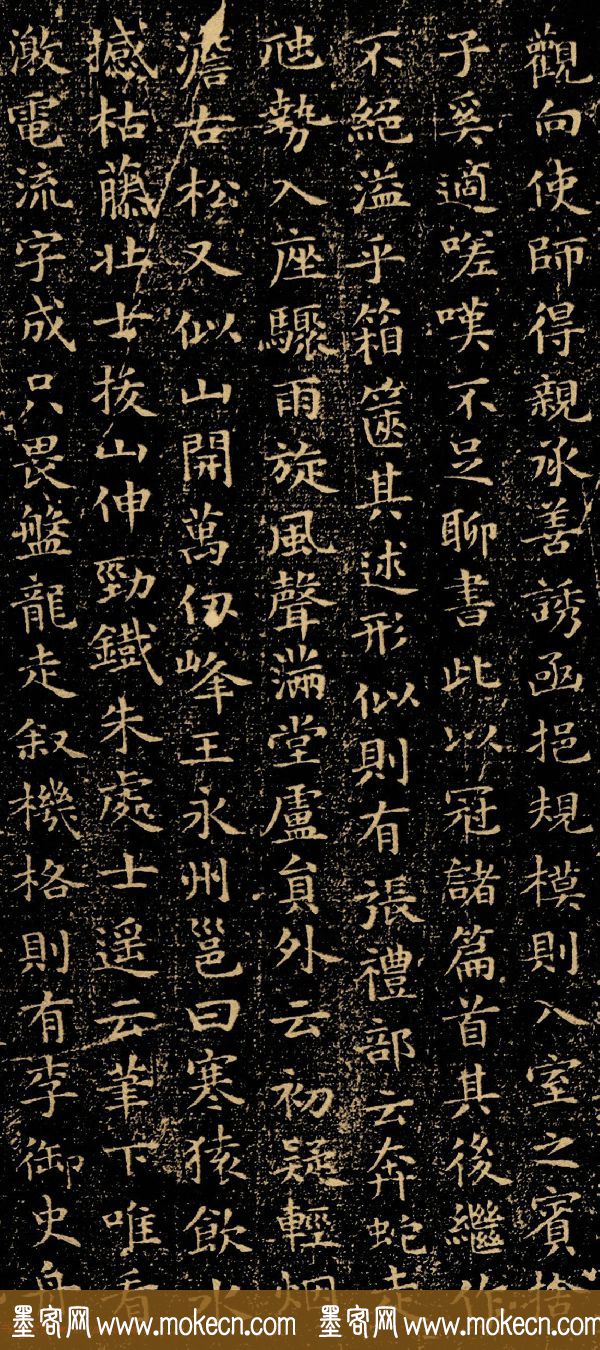 觀向使師得親承善誘函挹規模則入室之賓捨
子奚適嗟嘆不足聊書此以冠諸篇首其後繼作
不絕溢乎箱篋其述形似則有張禮部云奔蛇走
虺勢入座驟雨旋風聲滿堂盧貟外云初疑輕烟
澹古松又似山開萬仞峰王永州邕曰寒猿飲水
撼枯藤壯士拔山伸勁鐵朱處士遥云筆下唯看
激電流字成只畏盤龍走叙機格則有李御史舟
墨客网 www.mokecn.com 墨客网 www.mokecn.com